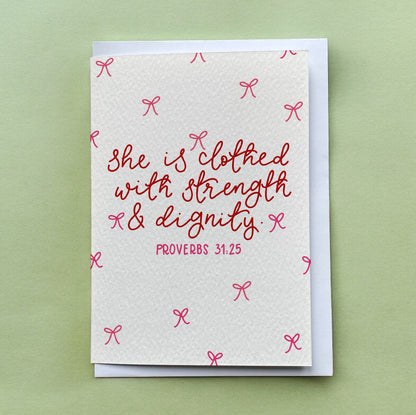 she is clothed
with strength
& dignity.
PROVERBS 31:25